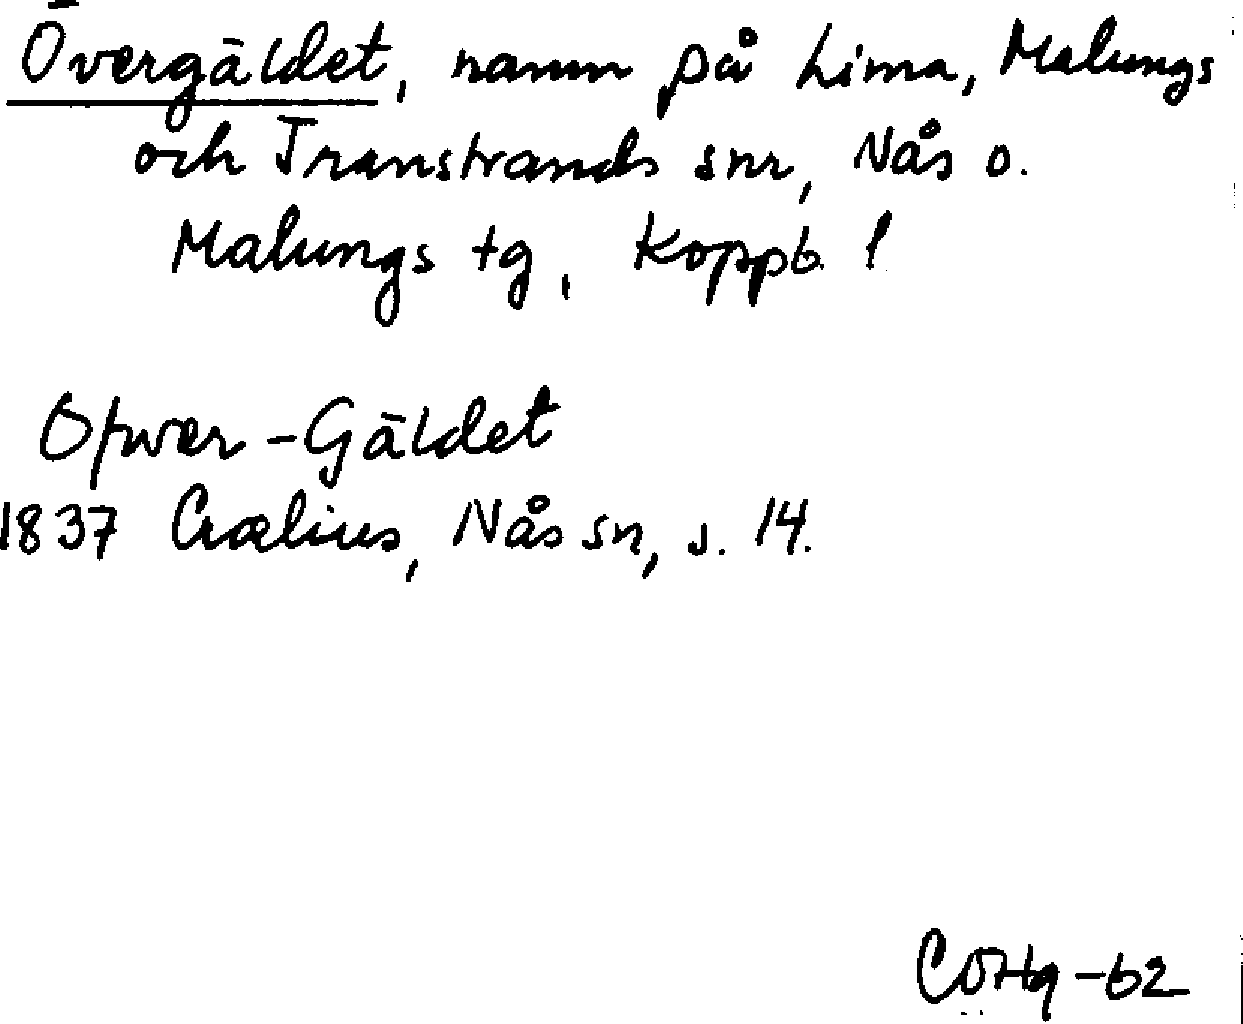 Övergäldet, namn på Lima, Malungs
och Transtrands snr, Nås o.
Malungs tg, Koppb. l
Ofwer-Gäldet
1837 Crælius, Nås sn, s. 14.
-62